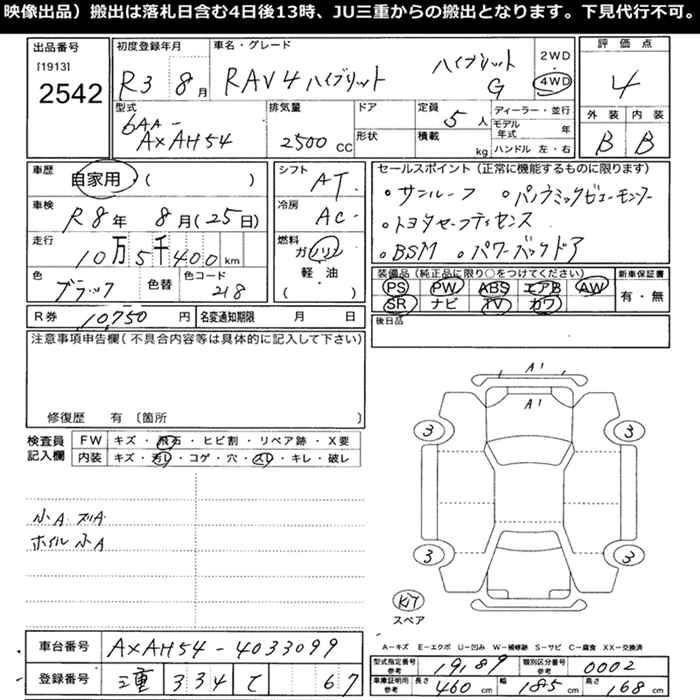 映像出品）搬出は落札日含む4日後13時、JU三重からの搬出となります。下見代行不可。
出品番号 [1913] 2542
初度登録年月 R3 8月
車名・グレード RAV4ハイブリット ハイブリット G
2WD 4WD
評価点 4
型式 6AA- AXAH54
排気量 2500 CC
ドア 形状
定員 5人 積載 kg
ディーラー・並行
モデル年式 年
ハンドル 左・右
外装 内装
B B
車歴 自家用・( )
シフト AT
車検 R8年 8月(25日)
冷房 AC
走行 10万5千400km
燃料 ガソリン 軽油 ( )
色 ブラック 色替 色コード 218
セールスポイント（正常に機能するものに限ります）
・サンルーフ ・パノラミックビューモニター
・トヨタセーフティセンス
・BSM ・パワーバックドア
装備品（純正品に限り○をつけてください） 新車保証書
PS PW ABS エアB AW 有・無
SR ナビ TV カワ
R券 10,750円 名変通知期限 月 日
後日品
注意事項申告欄（不具合内容等は具体的に記入して下さい）
修復歴 有〔箇所 〕
検査員記入欄
FW キズ・飛石・ヒビ割・リペア跡・X要
内装 キズ・汚レ・コゲ・穴・スレ・キレ・破レ
小A スリA
ホイル小A
A1
A1
3 3
3 3
Kit
スペア
A−キズ E−エクボ U−凹み W−補修跡 S−サビ C−腐食 XX−交換済
車台番号 AXAH54-4033099
登録番号 三重 334 て 67
型式指定番号 参考 19189 類別区分番号 参考 0002
車庫証明用 参考 長さ 460cm 幅 185cm 高さ 168cm